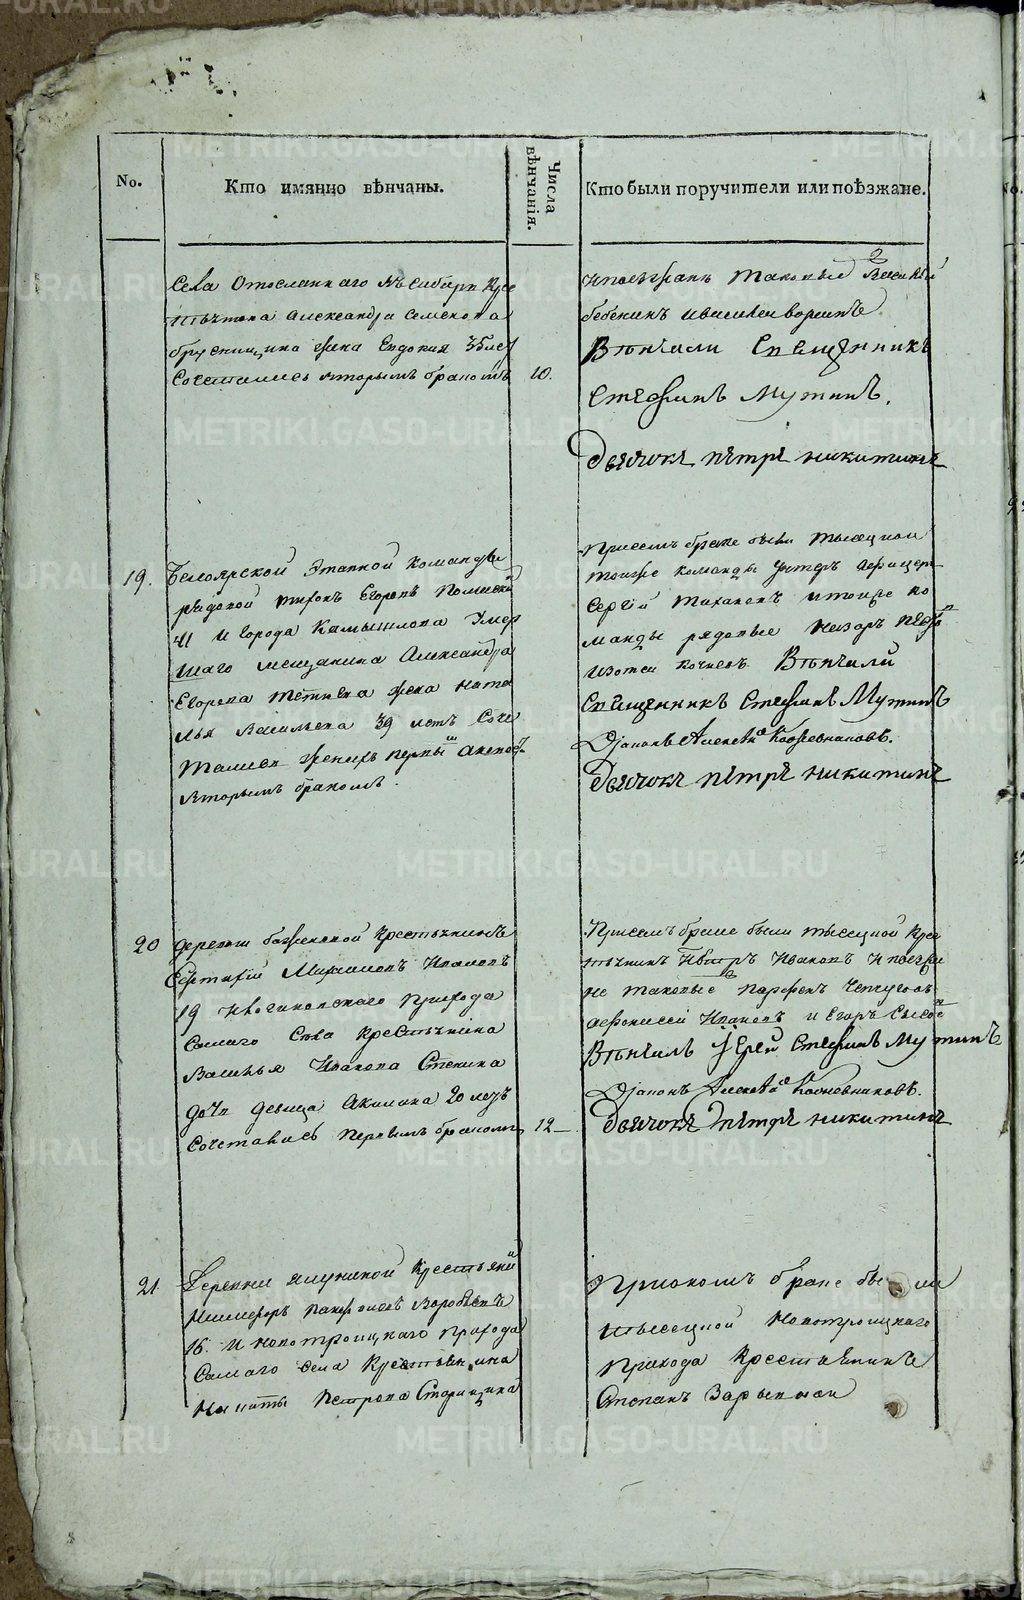 No.
Кто имянно вѣнчаны.
Числа вѣнчанія.
Кто были поручители или поѣзжане.
Села Отосланнаго въ Сибирь Кре
стьянина Александра Семенова
брусницина жена Евдокия
Сочетались вторымъ бракомъ
10.
и поезжанъ таковые Василей
бабкинъ
Вѣнчали Священникъ
Стефанъ Мутинъ.
Дьячокъ Петръ Никитинъ
19.
Белоярской Этапной Команды
рядовой тихонъ Егоровъ
41 и Города Камышлова Умер
шаго мещанина Александра
Егорова жена Ната
лья Васильева 39 летъ Соче
тались женихъ первы^м а невес
вторымъ бракомъ.
Присемъ браке были тысецкои
тоиже команды унтеръ афицеръ
Сергѣй и тоиже ко
манды рядовые Назаръ
Вѣнчали
Священникъ Стефанъ Мутинъ
Дiаконъ Алексѣй Кожевниковъ.
Дьячокъ Петръ Никитинъ
20
деревни баженовой Крестьянинъ
Мартиновъ Ивановъ
19 и прихода
Самаго Села Крестьянина
Василья Иванова Степина
дочь девица Акилина 20 летъ
Сочетались первымъ бракомъ
12
Присемъ браке были тысецкой Кре
стьянинъ Петръ Ивановъ и поезжа
не таковые Парфенъ
Афонасей Ивановъ и Егоръ
Вѣнчалъ Іерей Стефанъ Мутинъ
Дiаконъ Алексѣй Кожевниковъ.
Дьячокъ Петръ Никитинъ
21
Деревни Ялуниной Крестьяни^н
Никифоръ Воробьевъ
16. и Новотроицкаго прихода
Самаго Села Крестьянина
Никиты Петрова Старицина
При ономъ браке были
тысецкой Новотроицкаго
Прихода Крестьянинъ
Степанъ
METRIKI.GASO-URAL.RU